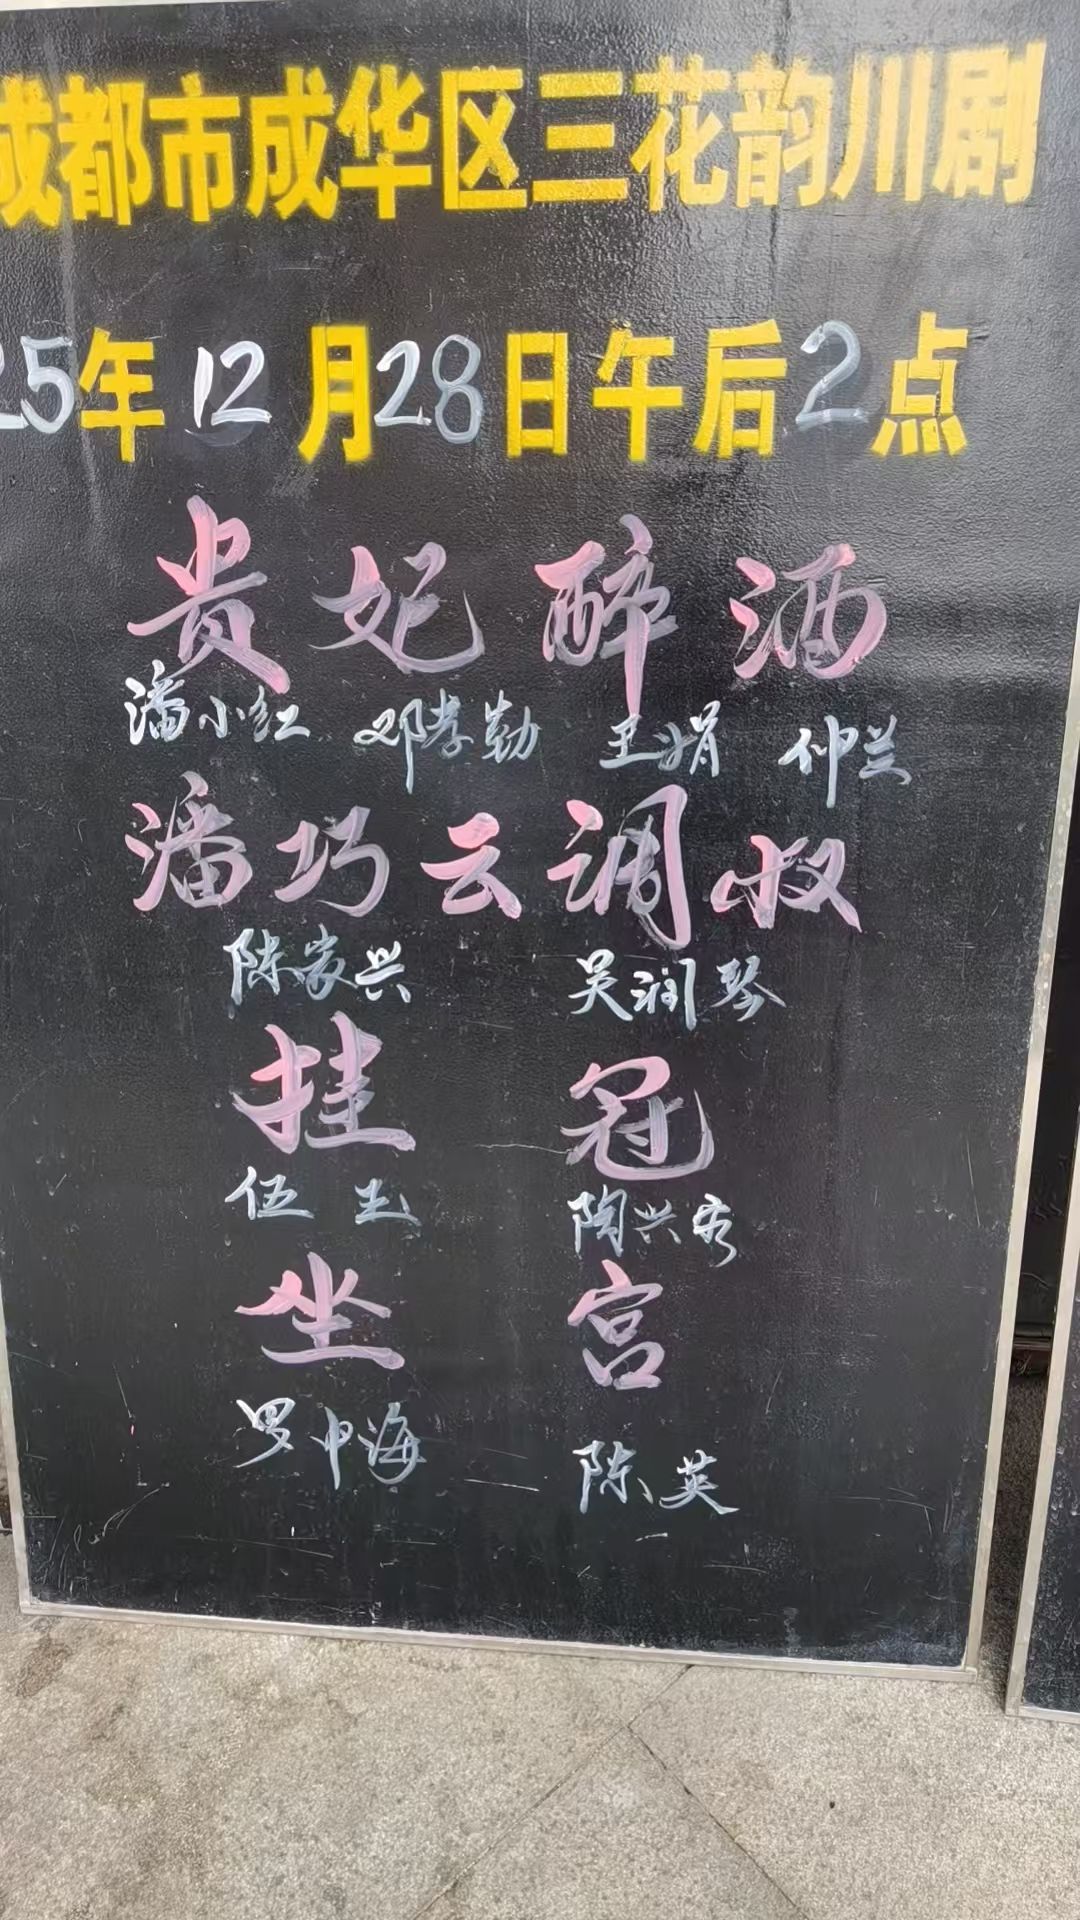 成都市成华区三花韵川剧
25年12月28日午后2点
贵妃醉酒
潘小红 邓孝勤 王娟 仲兰
潘巧云调叔
陈家兴 吴润琴
挂冠
伍 陶兴秀
坐宫
罗中海 陈英